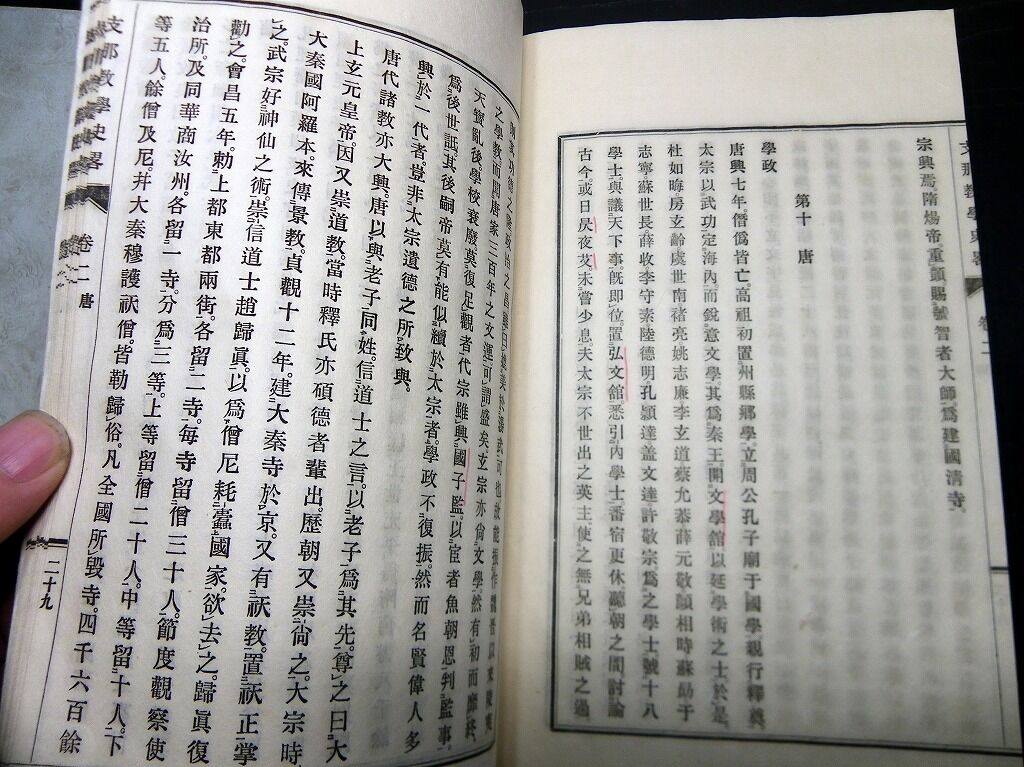 宗興焉隋煬帝重頒賜號智者大師爲建國清寺。
第十 唐
學政
唐興七年。僭僞皆亡。高祖初置州縣鄉學。立周公孔子廟于國學親行釋奠
太宗以武功定海内。而銳意文學。其爲秦王。開文學舘以延學術之士。於是。
杜如晦房玄齡虞世南褚亮姚志廉李玄道蔡允恭薛元敬顏相時蘇勗于
志寧。蘇世長。薛收李守素陸德明。孔穎達蓋文達許敬宗爲之學士。號十八
學士。與議天下事。既即位。置弘文舘悉引内學士番宿更休。聽朝之間討論
古今。或日昃夜艾。未嘗少息。夫太宗不世出之英主。使之無兄弟相賊之過
之學敎而開唐家三百年之文運。可謂盛矣。玄宗亦尙文學。然有初而靡終。
天寶亂後學校衰廢莫復足觀者。代宗雖興國子監。以宦者魚朝恩判監事。
爲後世詆。其後嗣帝莫有能似續於太宗者。學政不復振。然而名賢偉人多
興於一代者。豈非太宗遺德之所致與。
唐代諸敎亦大興。唐以與老子同姓。信道士之言。以老子爲其先。尊之曰大
上玄元皇帝。因又崇道敎。當時釋氏亦碩德者輩出。歷朝又崇尙之。大宗時
大秦國阿羅本。來傳景敎。貞觀十二年。建大秦寺於京。又有祆敎。置祆正掌
之。武宗好神仙之術。崇信道士趙歸眞。以爲僧尼耗蠹國家。欲去之。歸眞復
勸之。會昌五年。勅上都東都兩街。各留二寺。每寺留僧三十人。節度觀察使
治所。及同華商汝州。各留一寺。分爲三等。上等留僧二十人。中等留十人。下
等五人。餘僧及尼。幷大秦穆護祆僧。皆勒歸俗。凡全國所毀寺。四千六百餘
支那敎學史畧 卷二 唐 二十九